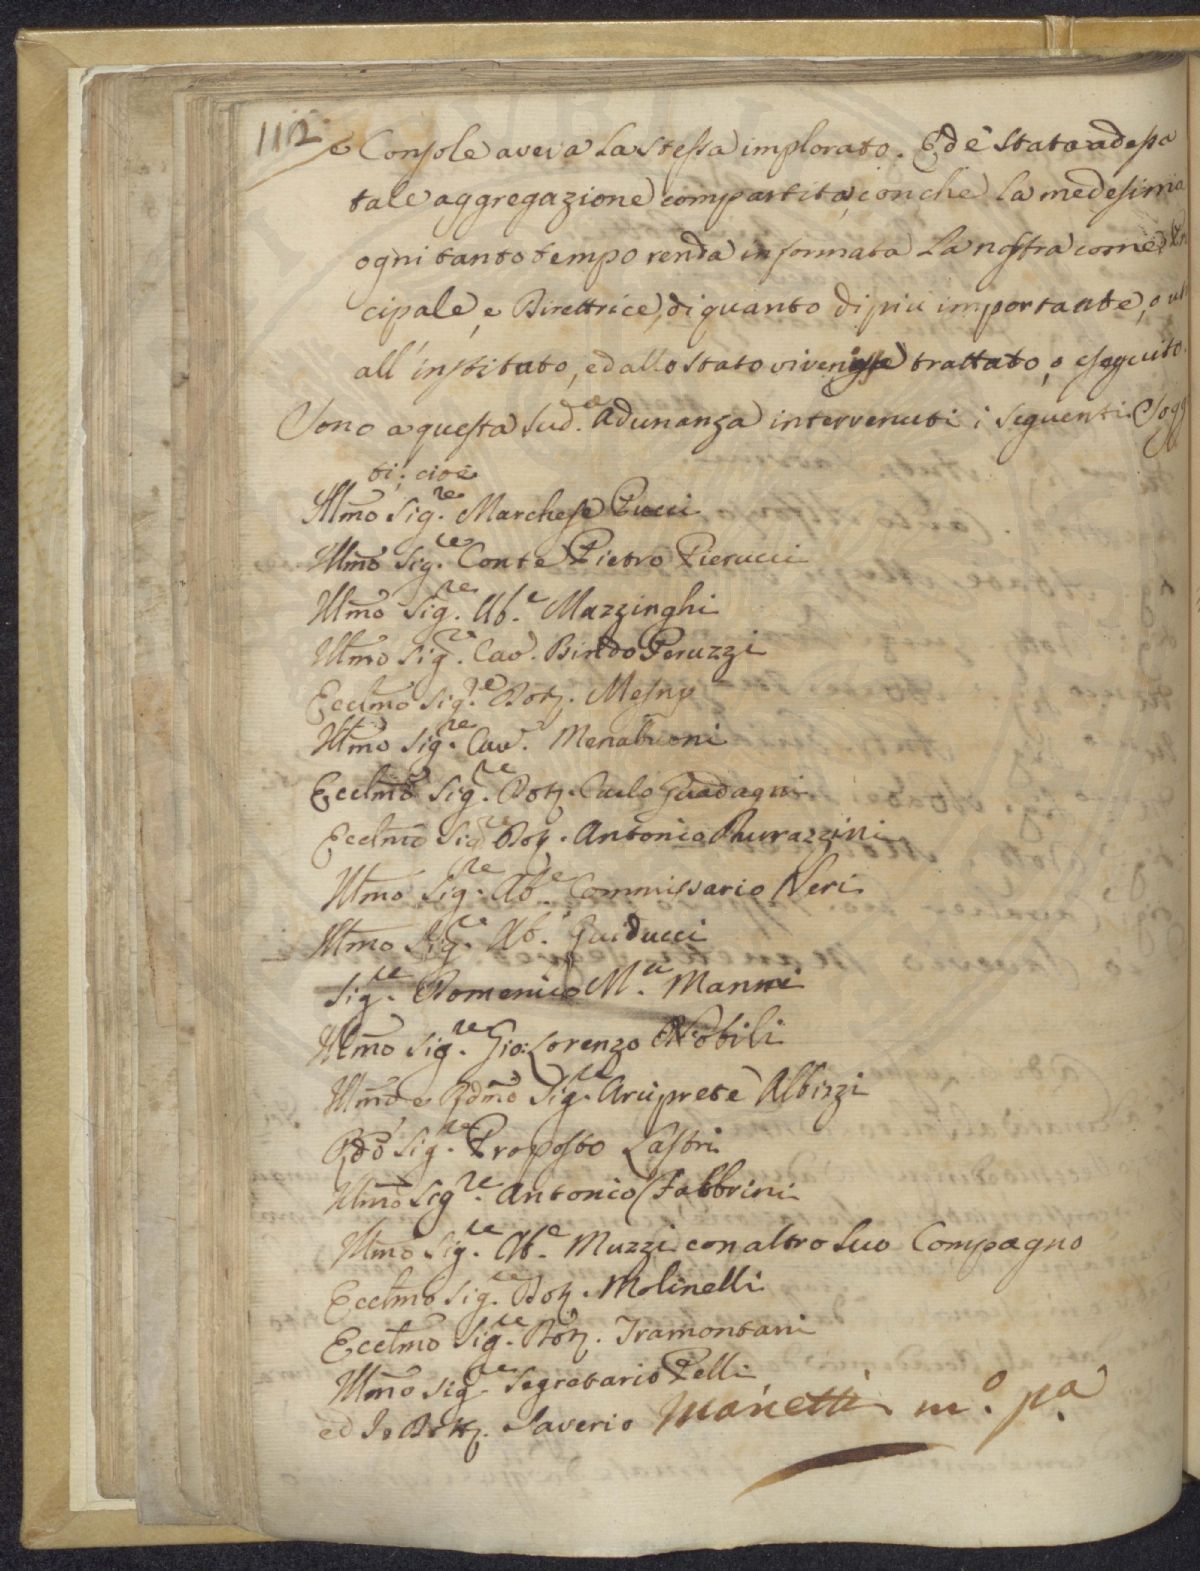 112
e Console aveva la stessa implorato. Ed è stata ad essa
tale aggregazione compartita, con che la medesima
ogni tanto tempo renda informata la nostra come
cipale, e Direttrice, di quanto di più importante, o
all'instituto, ed allo stato trattato, o eseguito.
Sono a questa sud.a Adunanza intervenuti i seguenti Sogg
ti; cioè
Ill̃mo Sig.re Marchese Pucci
Ill̃mo Sig.re Conte Pietro Pierucci
Ill̃mo Sig.re Ab.e Mazzinghi
Ill̃mo Sig.re Cav. Bindo Peruzzi
Eccl̃mo Sig.re Dott. Mesny
Ill̃mo Sig.re Cav. Menabuoni
Eccl̃mo Sig.re Dott. Carlo Guadagni
Eccl̃mo Sig.re Dott. Antonio Durazzini
Ill̃mo Sig.re Ab.e Commissario Neri
Ill̃mo Sig.re Ab.e Guiducci
Sig.re Domenico M.a Manni
Ill̃mo Sig.re Gio: Lorenzo Nobili
Ill̃mo e Rd̃mo Sig.re Arciprete Albizzi
Rdõ Sig.re Proposto Lastri
Ill̃mo Sig.re Antonio Fabbrini
Ill̃mo Sig.re Ab.e Muzzi con altro suo Compagno
Eccl̃mo Sig.re Dott. Molinelli
Eccl̃mo Sig.re Dott. Tramontani
Ill̃mo Sig.re Segretario Pelli
ed Io Dott. Saverio Manetti m.o p.a